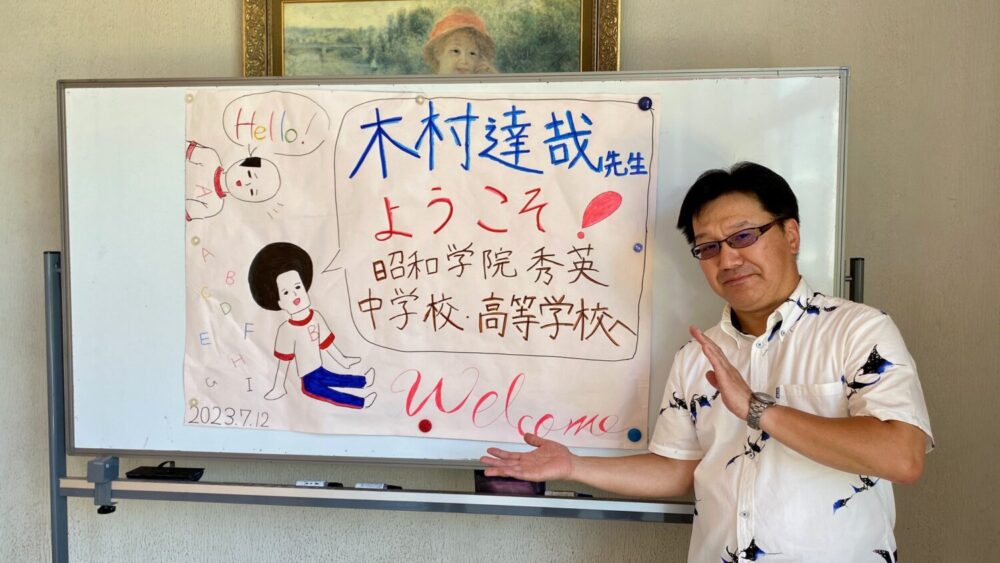 Hello!
木村達哉先生
ようこそ!
昭和学院秀英
中学校・高等学校へ
A
B
A
B
C
D
E
F
H
G
I
Welcome
2023.7.12